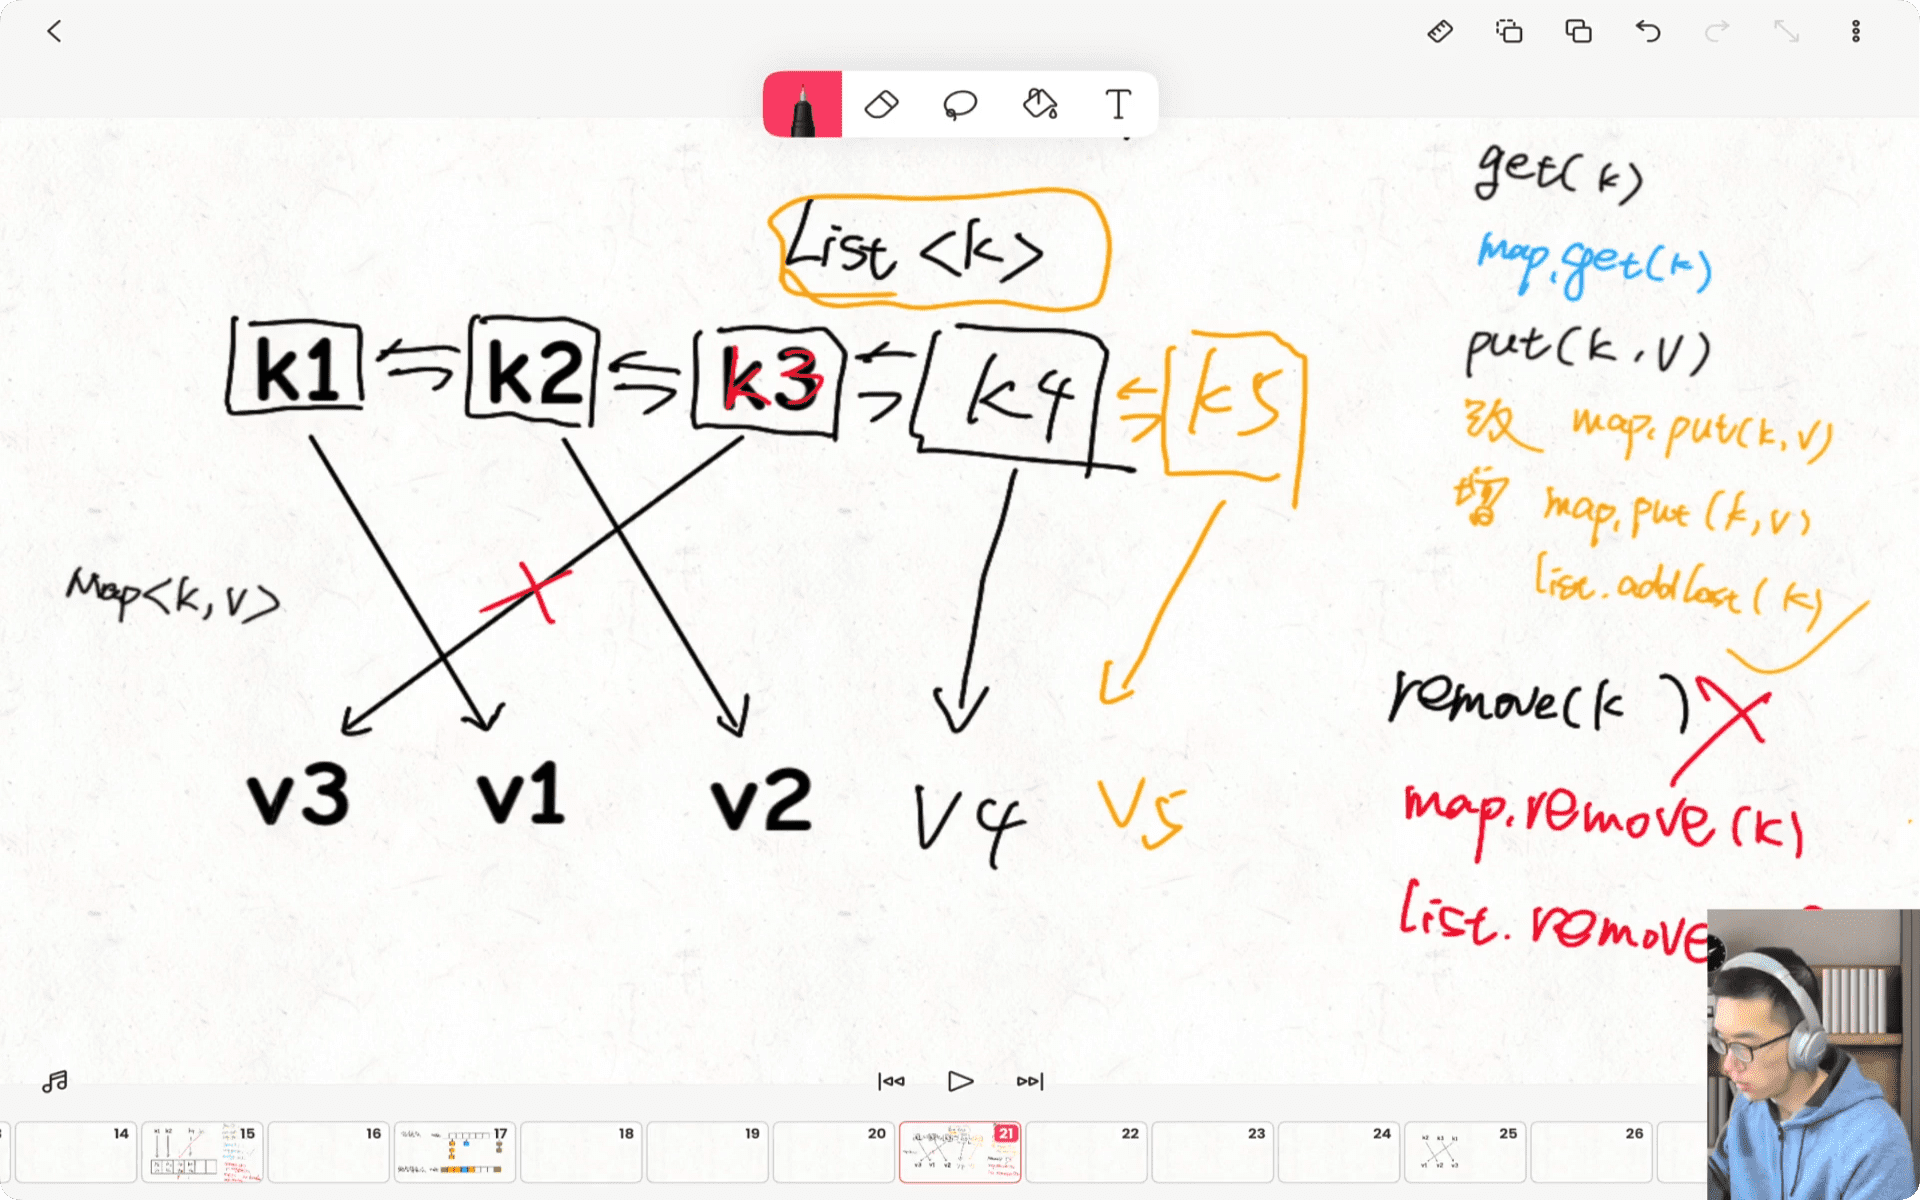 T
List <k>
k1 k2 k3 k4 k5
Map<k, v>
v3 v1 v2 v4 v5
get(k)
map.get(k)
put(k, v)
改 map.put(k, v)
增 map.put(k, v)
list.addlast(k)
remove(k )
map.remove(k)
list.remove
14 15 16 17 18 19 20 21 22 23 24 25 26